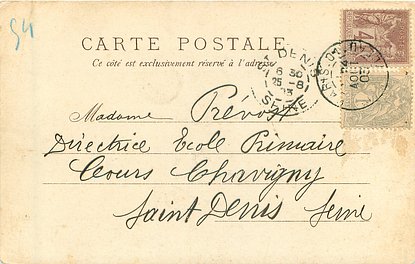 54
CARTE POSTALE
Ce côté est exclusivement réservé à l'adresse
ST DENIS
8 30
25 -8
03
SEINE
AOUT
03
4
Madame Prevost
Directrice Ecole Primaire
Cours Chavigny
Saint Denis Seine